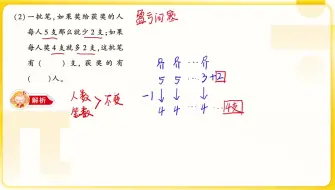 (2)一批笔,如果奖给获奖的人
每人5支那么就少2支;如果
每人奖4支就多2支,这批笔
有( )支,获奖的有
( )人。
解析
人数
笔数 > 不变
盈亏问题
5 5 … 3+2
-1 ↓ ↓ ↓
4 4 4 … 4支